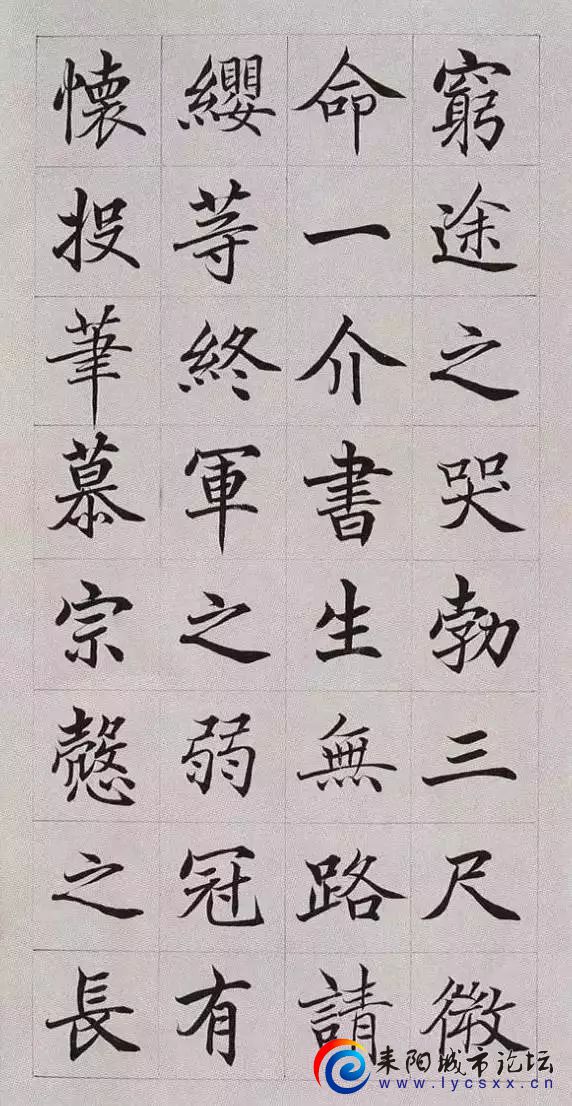 窮途之哭勃三尺微
命一介書生無路請
纓等終軍之弱冠有
懷投筆慕宗愨之長
耒阳城市论坛
www.lycsxx.cn